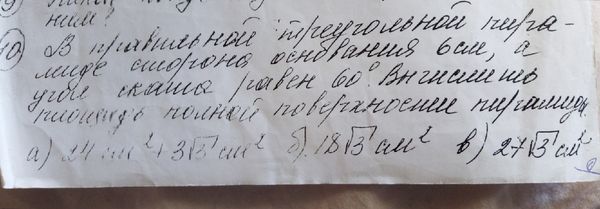 ним?
10 В правильной треугольной пира-
миде сторона основания 6 см, а
угол ската равен 60°. Вычислить
площадь полной поверхности пирамиды.
а) 24 см² + 3√3 см² б) 18√3 см² в) 27√3 см²